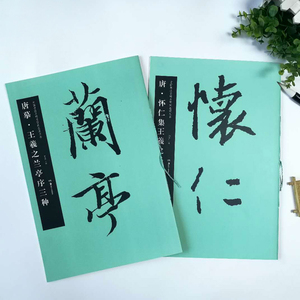 蘭亭
唐摹·王羲之兰亭序三种
懷仁
唐·怀仁集王羲之